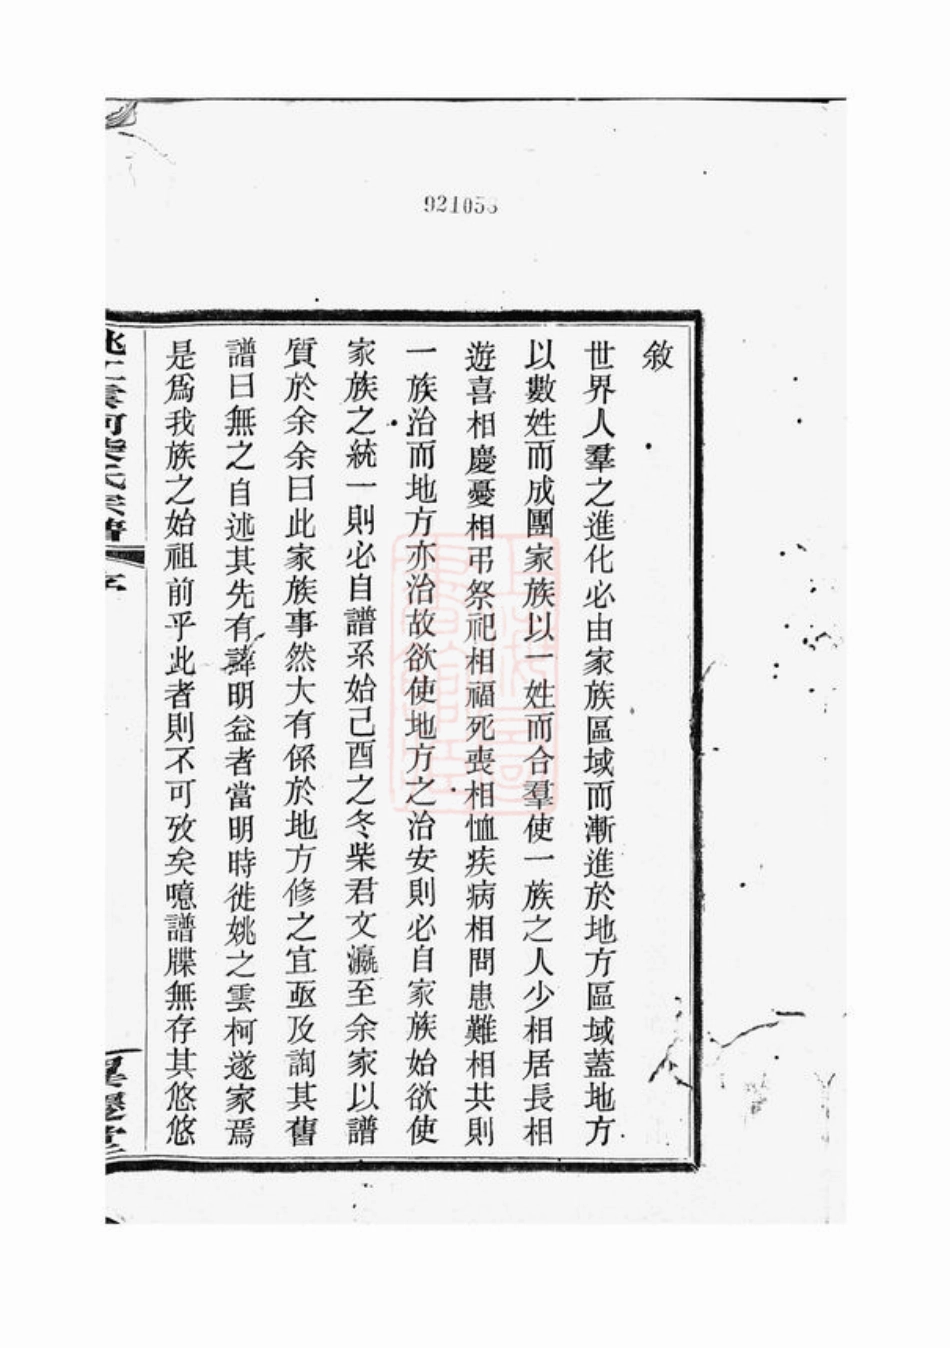 921058
敘
世界人羣之進化必由家族區域而漸進於地方區域蓋地方
以數姓而成團家族以一姓而合羣使一族之人少相居長相
遊喜相慶憂相弔祭祀相福死喪相恤疾病相問患難相共則
一族治而地方亦治故欲使地方之治安則必自家族始欲使
家族之統一則必自譜系始己酉之冬柴君文瀛至余家以譜
質於余余曰此家族事然大有係於地方修之宜亟及詢其舊
譜曰無之自述其先有諱明益者當明時徙姚之雲柯遂家焉
是爲我族之始祖前乎此者則不可攷矣噫譜牒無存其悠悠